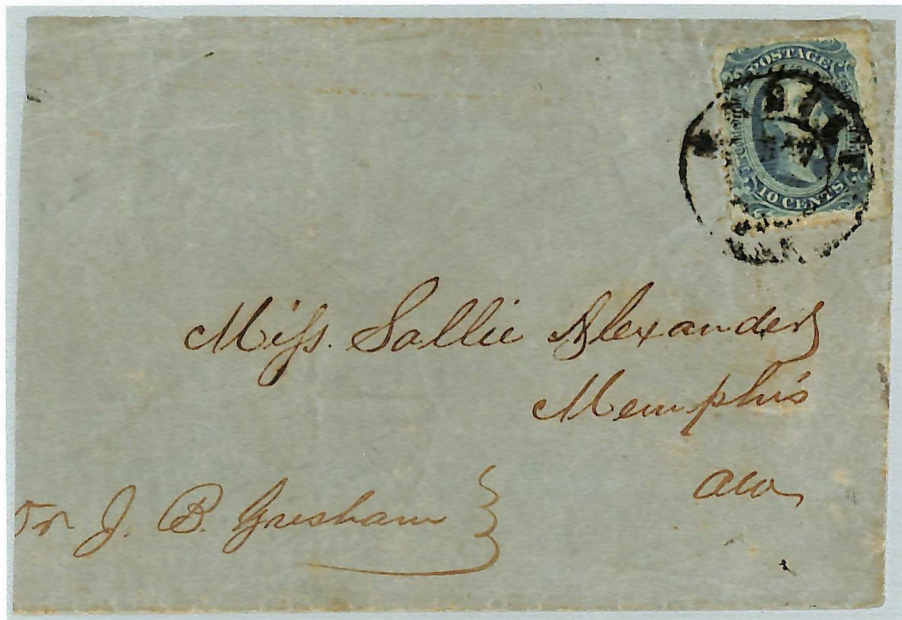 POSTAGE
10 CENTS
Miss. Sallie Alexander
Memphis
Ala
J. B. Gresham